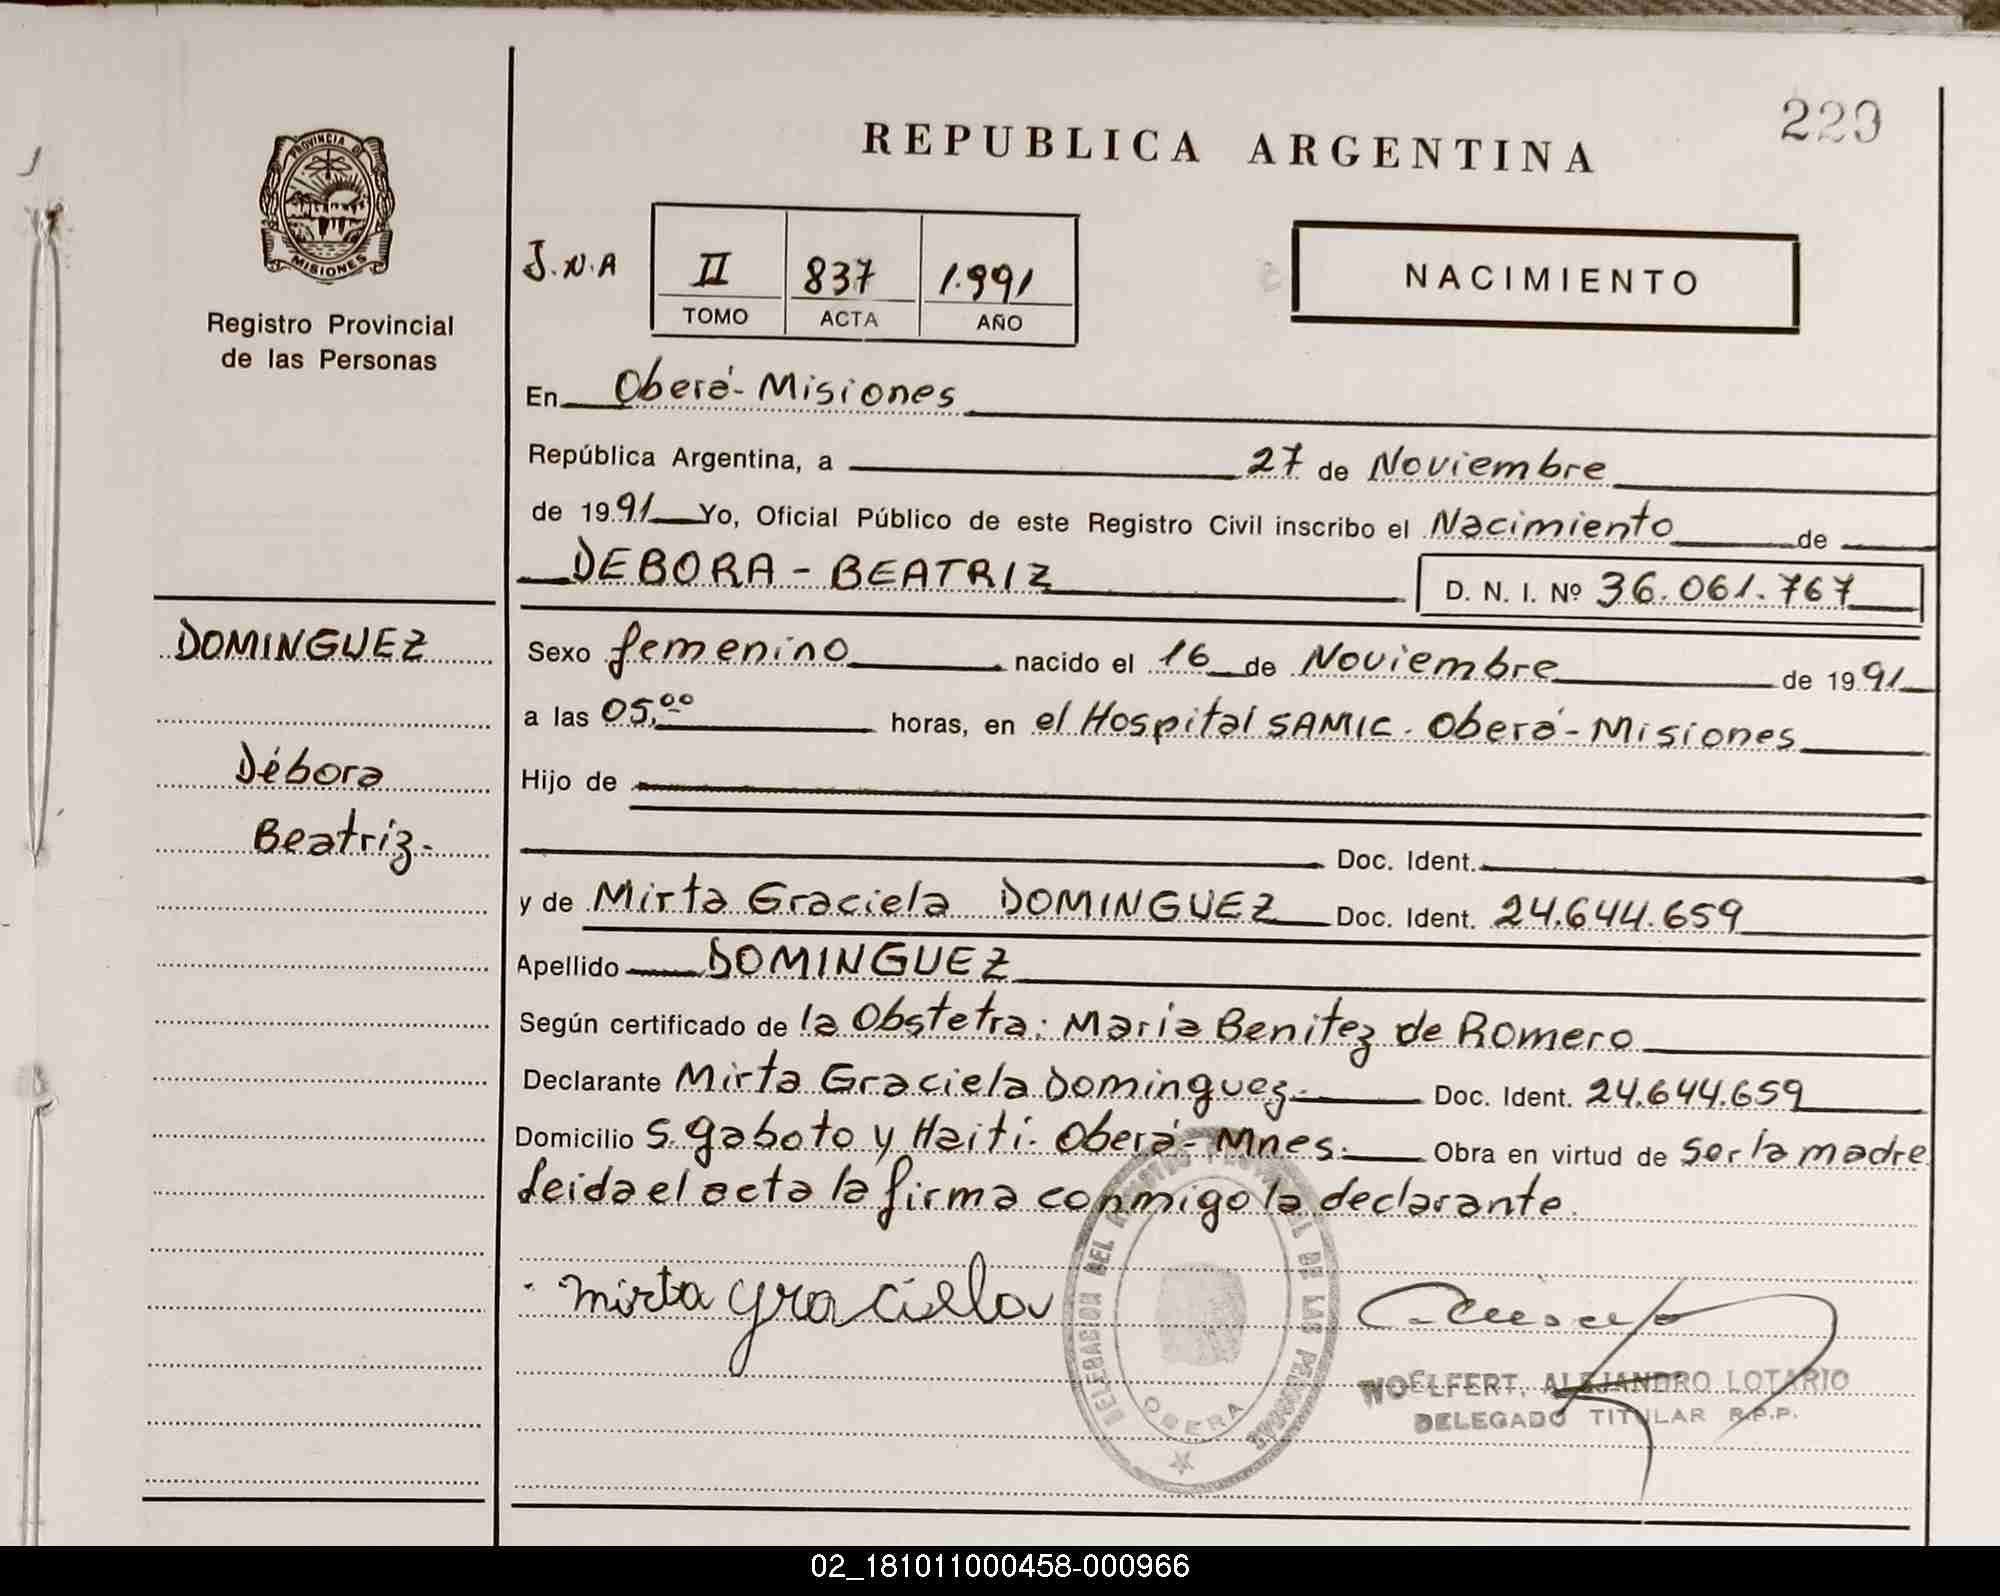 223
REPUBLICA ARGENTINA
PROVINCIA DE
MISIONES
Registro Provincial
de las Personas
J.N.A
II 837 1.991
TOMO ACTA AÑO
NACIMIENTO
En Oberá-Misiones
República Argentina, a 27 de Noviembre
de 1991 Yo, Oficial Público de este Registro Civil inscribo el Nacimiento de
DEBORA - BEATRIZ D. N. I. Nº 36.061.767
DOMINGUEZ
Débora
Beatriz.-
Sexo femenino nacido el 16 de Noviembre de 1991
a las 05,00 horas, en el Hospital SAMIC. Oberá-Misiones
Hijo de
Doc. Ident.
y de Mirta Graciela DOMINGUEZ Doc. Ident. 24.644.659
Apellido DOMINGUEZ
Según certificado de la Obstetra: María Benítez de Romero
Declarante Mirta Graciela Dominguez.- Doc. Ident. 24.644.659
Domicilio S. Gaboto y Haití. Oberá-Mnes. Obra en virtud de ser la madre
Leida el acta la firma conmigo la declarante.
mirta graciela
DELEGACION DEL REGISTRO PROVINCIAL DE LAS PERSONAS
OBERA
WOELFERT, ALEJANDRO LOTARIO
DELEGADO TITULAR R.P.P.
02_181011000458-000966